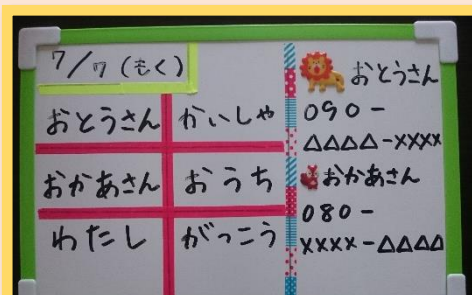 7/7（もく）
おとうさん かいしゃ
おかあさん おうち
わたし がっこう
おとうさん
090-
△△△△-××××
おかあさん
080-
××××-△△△△